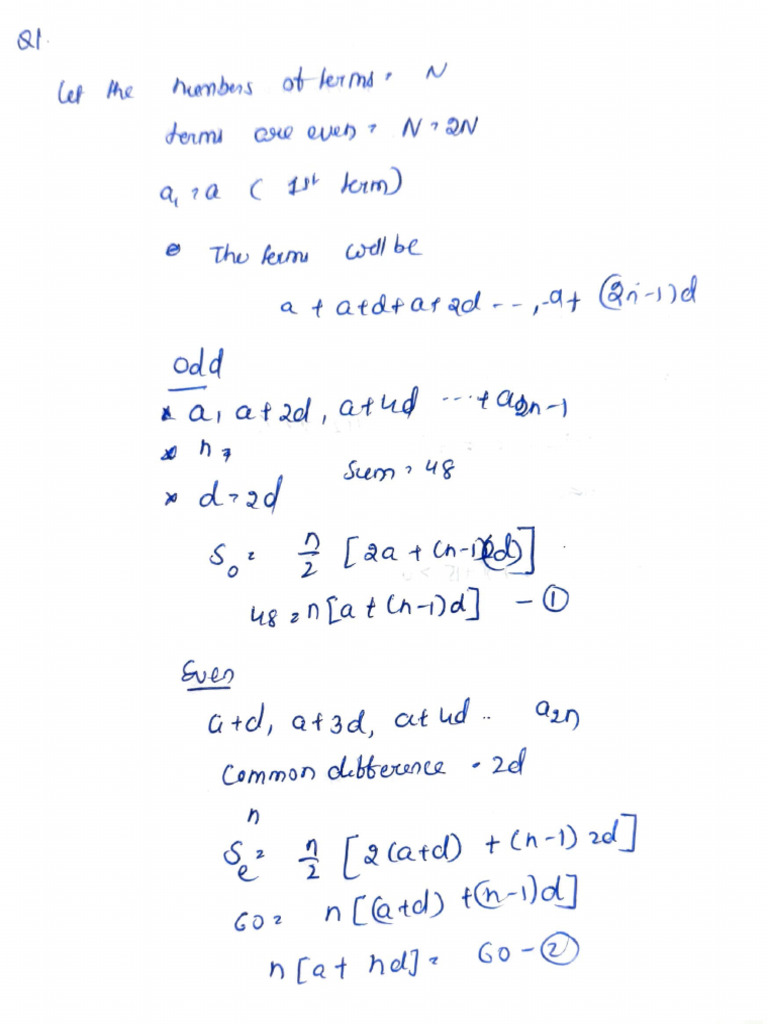 Q1.
Let the numbers of terms = N
terms are even = N = 2N
a₁ = a ( 1st term)
The terms will be
a + a+d + a+2d - - , -a + (2n-1)d
odd
* a, a+2d, a+4d ... + a₂n-1
* n =
Sum = 48
* d = 2d
S₀ = n/2 [2a + (n-1)(2d)]
48 = n[a + (n-1)d] - ①
Even
a+d, a+3d, a+4d .. a₂n
Common difference = 2d
n
Sₑ = n/2 [2(a+d) + (n-1) 2d]
60 = n[(a+d) + (n-1)d]
n[a + nd] = 60 - ②